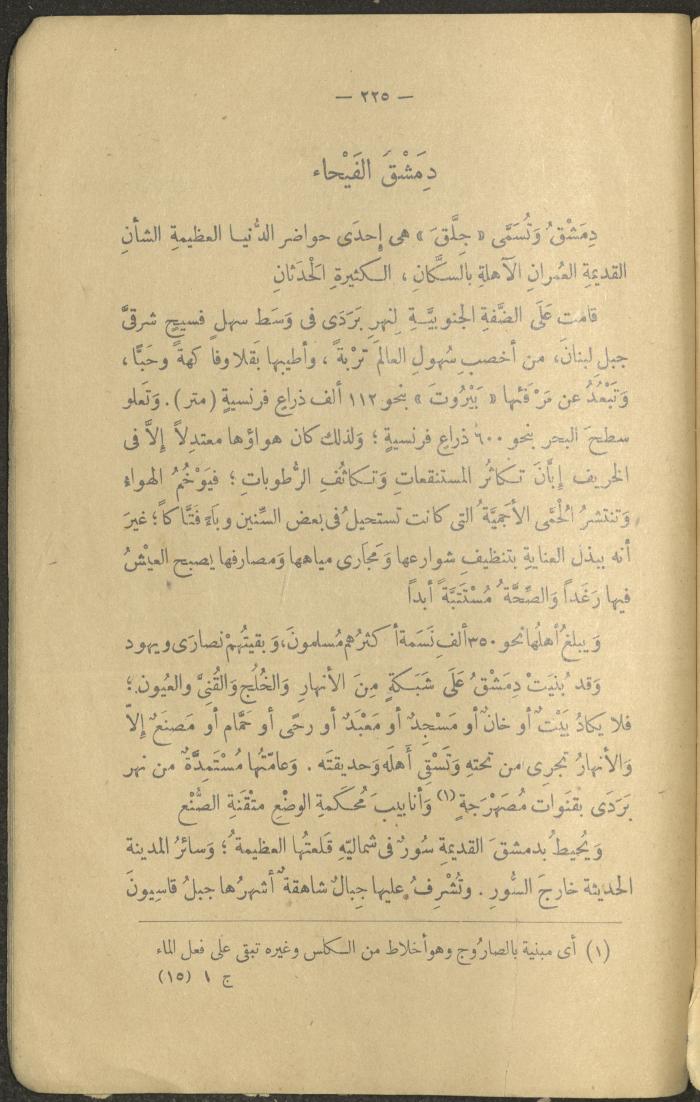 — ٢٢٥ —
دِمَشْقَ الفَيْحاء
دِمَشْقُ وَتُسَمَّى « جِلَّقَ » هى إِحدَى حواضر الدُّنيا العظيمةِ الشأنِ
القديمةِ العُمرانِ الآهلةِ بالسكَّانِ ، الكثيرةِ الحَدَثانِ
قامت عَلَى الضَّفةِ الجنوبيَّةِ لِنهرِ بَرَدَى فى وَسَط سهلٍ فسيحٍ شرقىَّ
جبلِ لبنانَ ، من أخصبِ سُهولِ العالمَ تربةً ، وأطيبها بَقلا وفاكهةً وحَبًّا ،
وَتَبْعُدُ عن مَرْفَئها « بَيْرُوتَ » بنحو ١١٢ ألف ذراعٍ فرنسيةٍ (متر) . وَتَعلو
سطحَ البحر بنحو ٦٠٠ ذراعٍ فرنسيةٍ ؛ وَلذلك كان هواؤها معتدِلاً إلاَّ فى
الخريف إبَّانَ تكاثُر المستنقعات وَتكاثُفِ الرُّطوباتِ ؛ فيَوْخُمُ الهواء
وَتنتشرُ الحُمَّى الأَجَمِيَّةُ التى كانت تستحيلُ فى بعض السِّنين وباءً فَتَّاكاً ؛ غيرَ
أنه ببذل العنايةِ بتنظيفِ شوارعها وَمجَارى مياهها وَمصارفها يصبح العيْشُ
فيها رَغَداً وَالصِّحَّةُ مُسْتَتِبَّةً أبداً
وَيبلغُ أهلُها نحو ٣٥٠ ألفِ نَسَمة أكثرُهم مُسلمونَ، وَبقيتُهُمْ نصارَى ويهود
وَقد بُنيَتْ دِمَشْقُ عَلَى شَبَكةٍ مِنَ الأنهارِ وَالخُلُجِ وَالقُنِىِّ والعُيون ؛
فلا يكادُ بَيْتٌ أو خانٌ أو مَسْجِدٌ أو مَعْبَدٌ أو رحًى أو حَمَّام أو مَصنَعٌ إلاَّ
وَالأنهارُ تجرِى من تحتهِ وَتَسْقِى أَهلَه وَحديقتَه . وَعامّتُها مُسْتَمِدَّةٌ من نهر
بَرَدَى بقنَوات مُصَهْرَجةٍ (١) وَأنابيبَ مُحكَمةِ الوضْعِ متْقَنةِ الصُّنْع
وَيُحيطُ بدمشقَ القديمةِ سُورٌ فى شماليّهِ قَلعتُها العظيمةُ ؛ وَسائرُ المدينة
الحديثة خارجَ السُّورِ . وتُشْرِفُ عليها جِبالٌ شاهقةٌ أشهرُها جبلُ قاسِيونَ
(١) أى مبنية بالصارُوج وهو أخلاط من الكلس وغيره تبقى على فعل الماء
ج ١ (١٥)